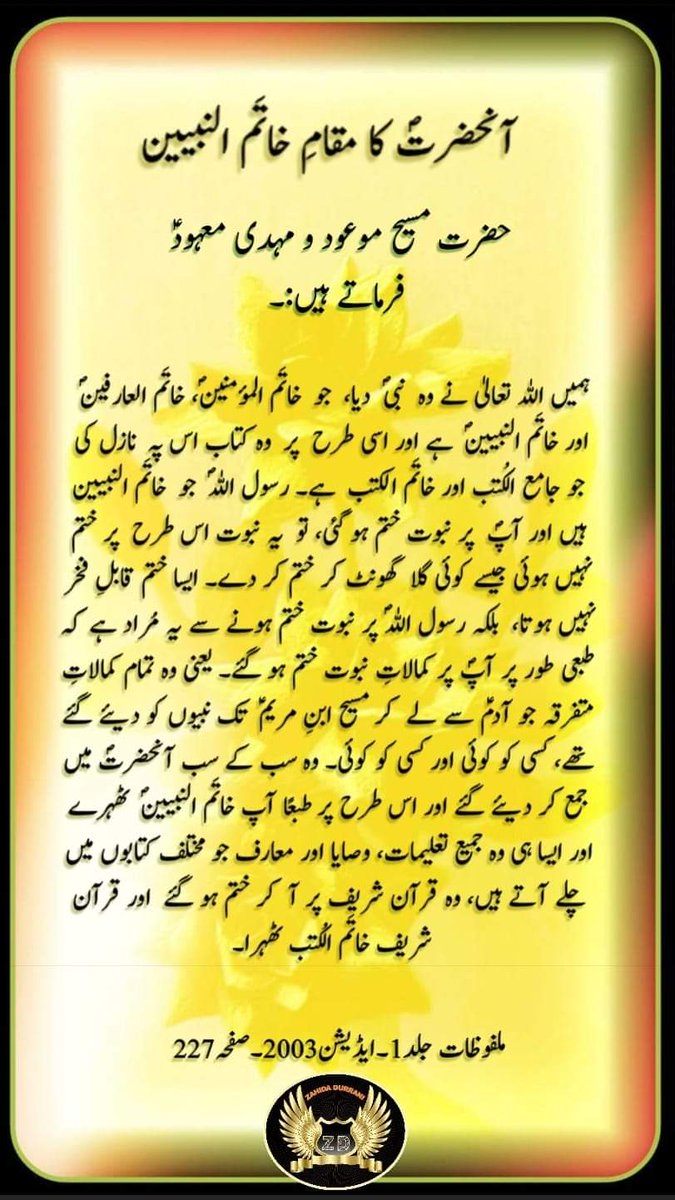 آنحضرتؐ کا مقامِ خاتَم النبیین
حضرت مسیح موعود و مہدی معہودؑ
فرماتے ہیں:۔
ہمیں اللہ تعالیٰ نے وہ نبیؐ دیا، جو خاتَم المؤمنینؐ، خاتَم العارفینؐ
اور خاتَم النبیینؐ ہے اور اسی طرح پر وہ کتاب اس پہ نازل کی
جو جامع الکُتب اور خاتَم الکتب ہے۔ رسول اللہؐ جو خاتَم النبیین
ہیں اور آپؐ پر نبوت ختم ہو گئی، تو یہ نبوت اس طرح پر ختم
نہیں ہوئی جیسے کوئی گلا گھونٹ کر ختم کر دے۔ ایسا ختم قابلِ فخر
نہیں ہوتا، بلکہ رسول اللہؐ پر نبوت ختم ہونے سے یہ مُراد ہے کہ
طبعی طور پر آپؐ پر کمالاتِ نبوت ختم ہو گئے۔ یعنی وہ تمام کمالاتِ
متفرقہ جو آدمؑ سے لے کر مسیح ابنِ مریمؑ تک نبیوں کو دیئے گئے
تھے، کسی کو کوئی اور کسی کو کوئی۔ وہ سب کے سب آنحضرتؐ میں
جمع کر دیئے گئے اور اس طرح پر طبعًا آپ خاتَم النبیینؐ ٹھہرے
اور ایسا ہی وہ جمیع تعلیمات، وصایا اور معارف جو مختلف کتابوں میں
چلے آتے ہیں، وہ قرآن شریف پر آ کر ختم ہو گئے اور قرآن
شریف خاتَم الکُتب ٹھہرا۔
ملفوظات جلد1۔ایڈیشن2003۔صفحہ227
ZAHIDA DURRANI
ZD